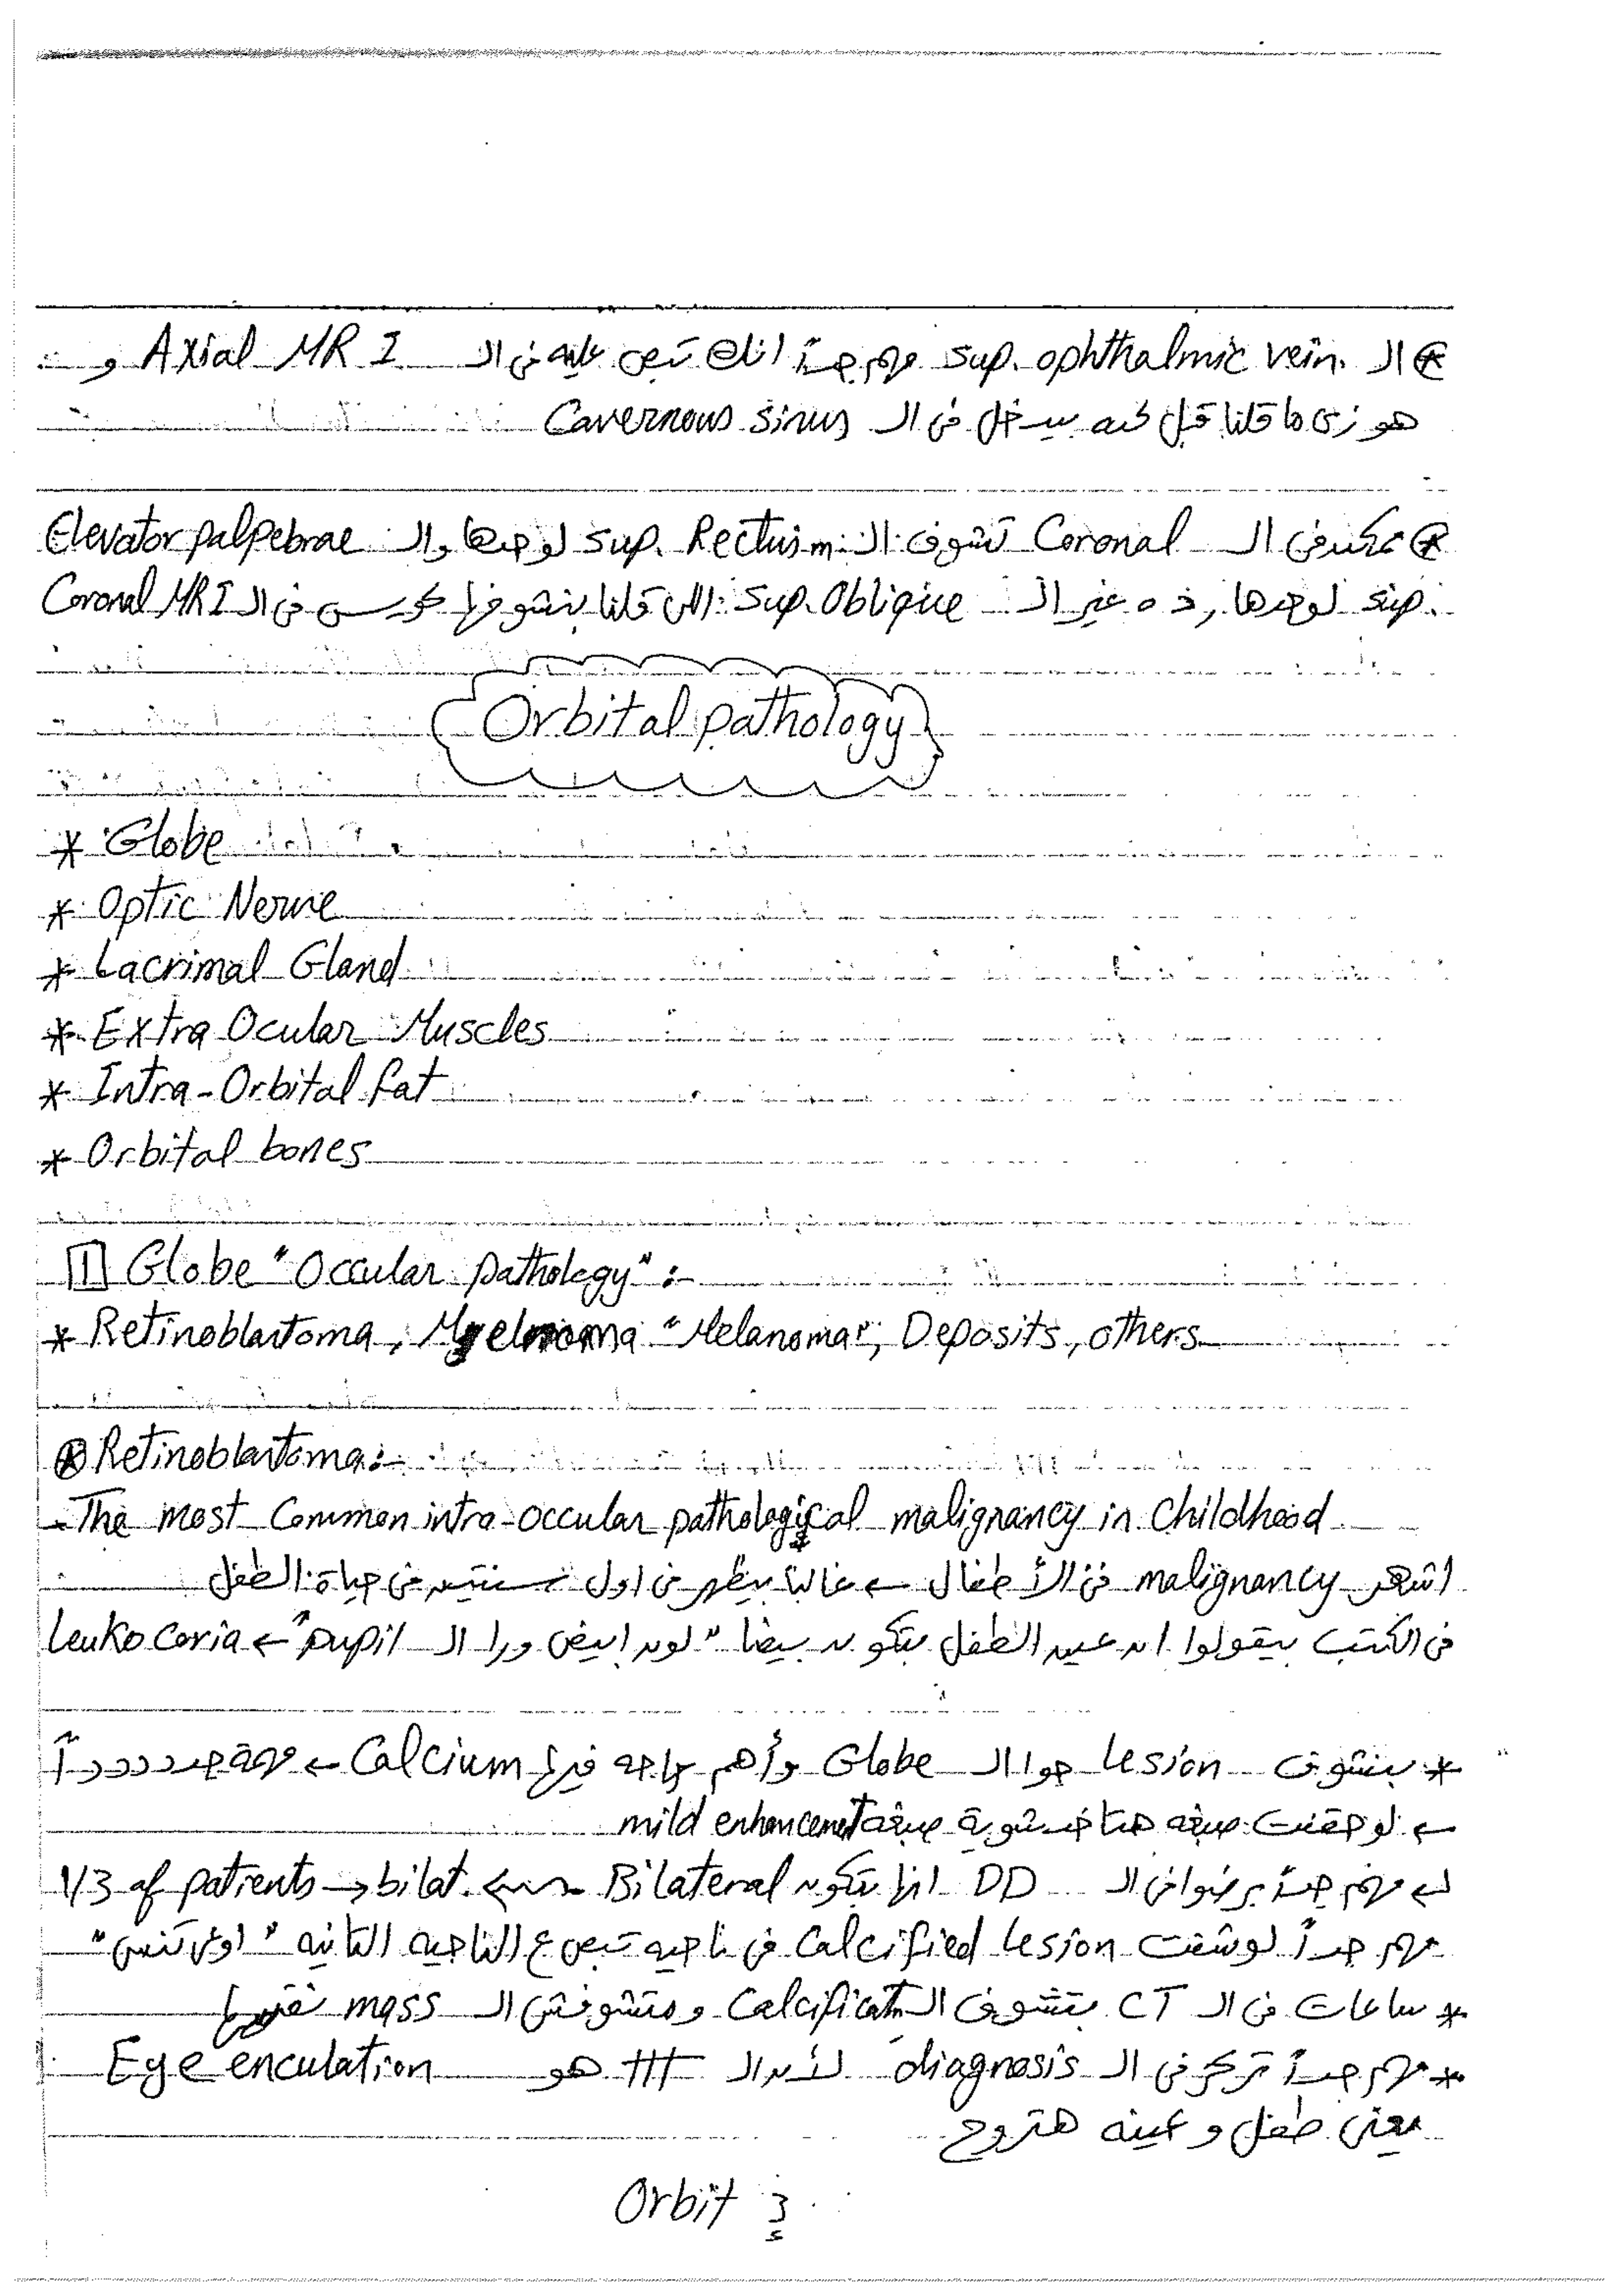 ⊛ ال sup. ophthalmic vein. مهم جداً انك تبص عليه فى ال Axial MRI و
هو زى ما قلنا قبل كده بيدخل فى ال Cavernous sinus
⊛ ممكن فى ال Coronal تشوف ال sup. Rectus m لوحدها وال Elevator palpebrae
sup. لوحدها, ده غير ال sup. Oblique اللى قلنا بنشوفها كويس فى ال Coronal MRI
Orbital pathology
* Globe
* Optic Nerve
* Lacrimal Gland
* Extra Ocular Muscles
* Intra-Orbital fat
* Orbital bones
1 Globe "Occular pathology" :-
* Retinoblastoma, "Melanoma", Deposits, others
⊛ Retinoblastoma:-
- The most Common intra-occular pathological malignancy in Childhood
اشهر malignancy فى الأطفال ← غالباً بيظهر فى اول سنتين فى حياة الطفل
فى الكتب بيقولوا ان عين الطفل بتكون بيضا "لون ابيض ورا ال pupil" ← leuko coria
* بنشوف lesion جوا ال Globe وأهم حاجه فيها Calcium ← مهمة جددددداً
← لو حقنت صبغه هتاخد شوية صبغة mild enhancemet
↳ مهم جداً برضوا فى ال DD انها بتكون Bilateral ← 1/3 of patients → bilat.
مهم جداً لو شفت Calcified lesion فى ناحيه تبص ع الناحيه التانيه "اوعى تنسى"
* ساعات فى ال CT بتشوف ال Calcificatn ومتشوفش ال mass نفسها
* مهم جداً تركز فى ال diagnosis لأن ال ttt هو Eye enculation
يعنى طفل و عينه هتروح
Orbit 3